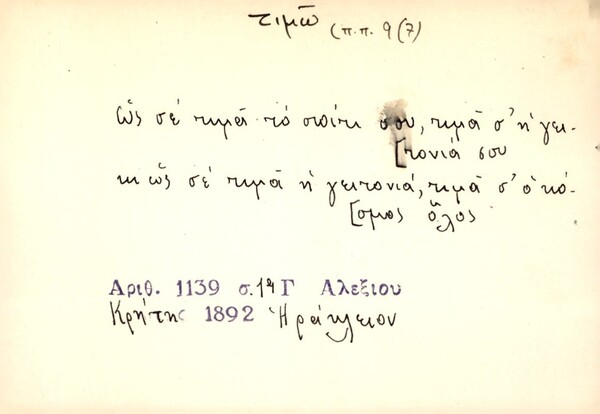 τιμῶ (π.π. 9(7)
ὣς σέ τιμᾶ τό σπίτι σου, τιμᾶ σ' ἡ γει-
[τονιά σου
κι ὣς σέ τιμᾶ ἡ γειτονιά, τιμᾶ σ' ὁ κό-
[σμος ὅλος
Αριθ. 1139 σ. 19 Γ Αλεξίου
Κρήτης 1892 Ἡράκλειον